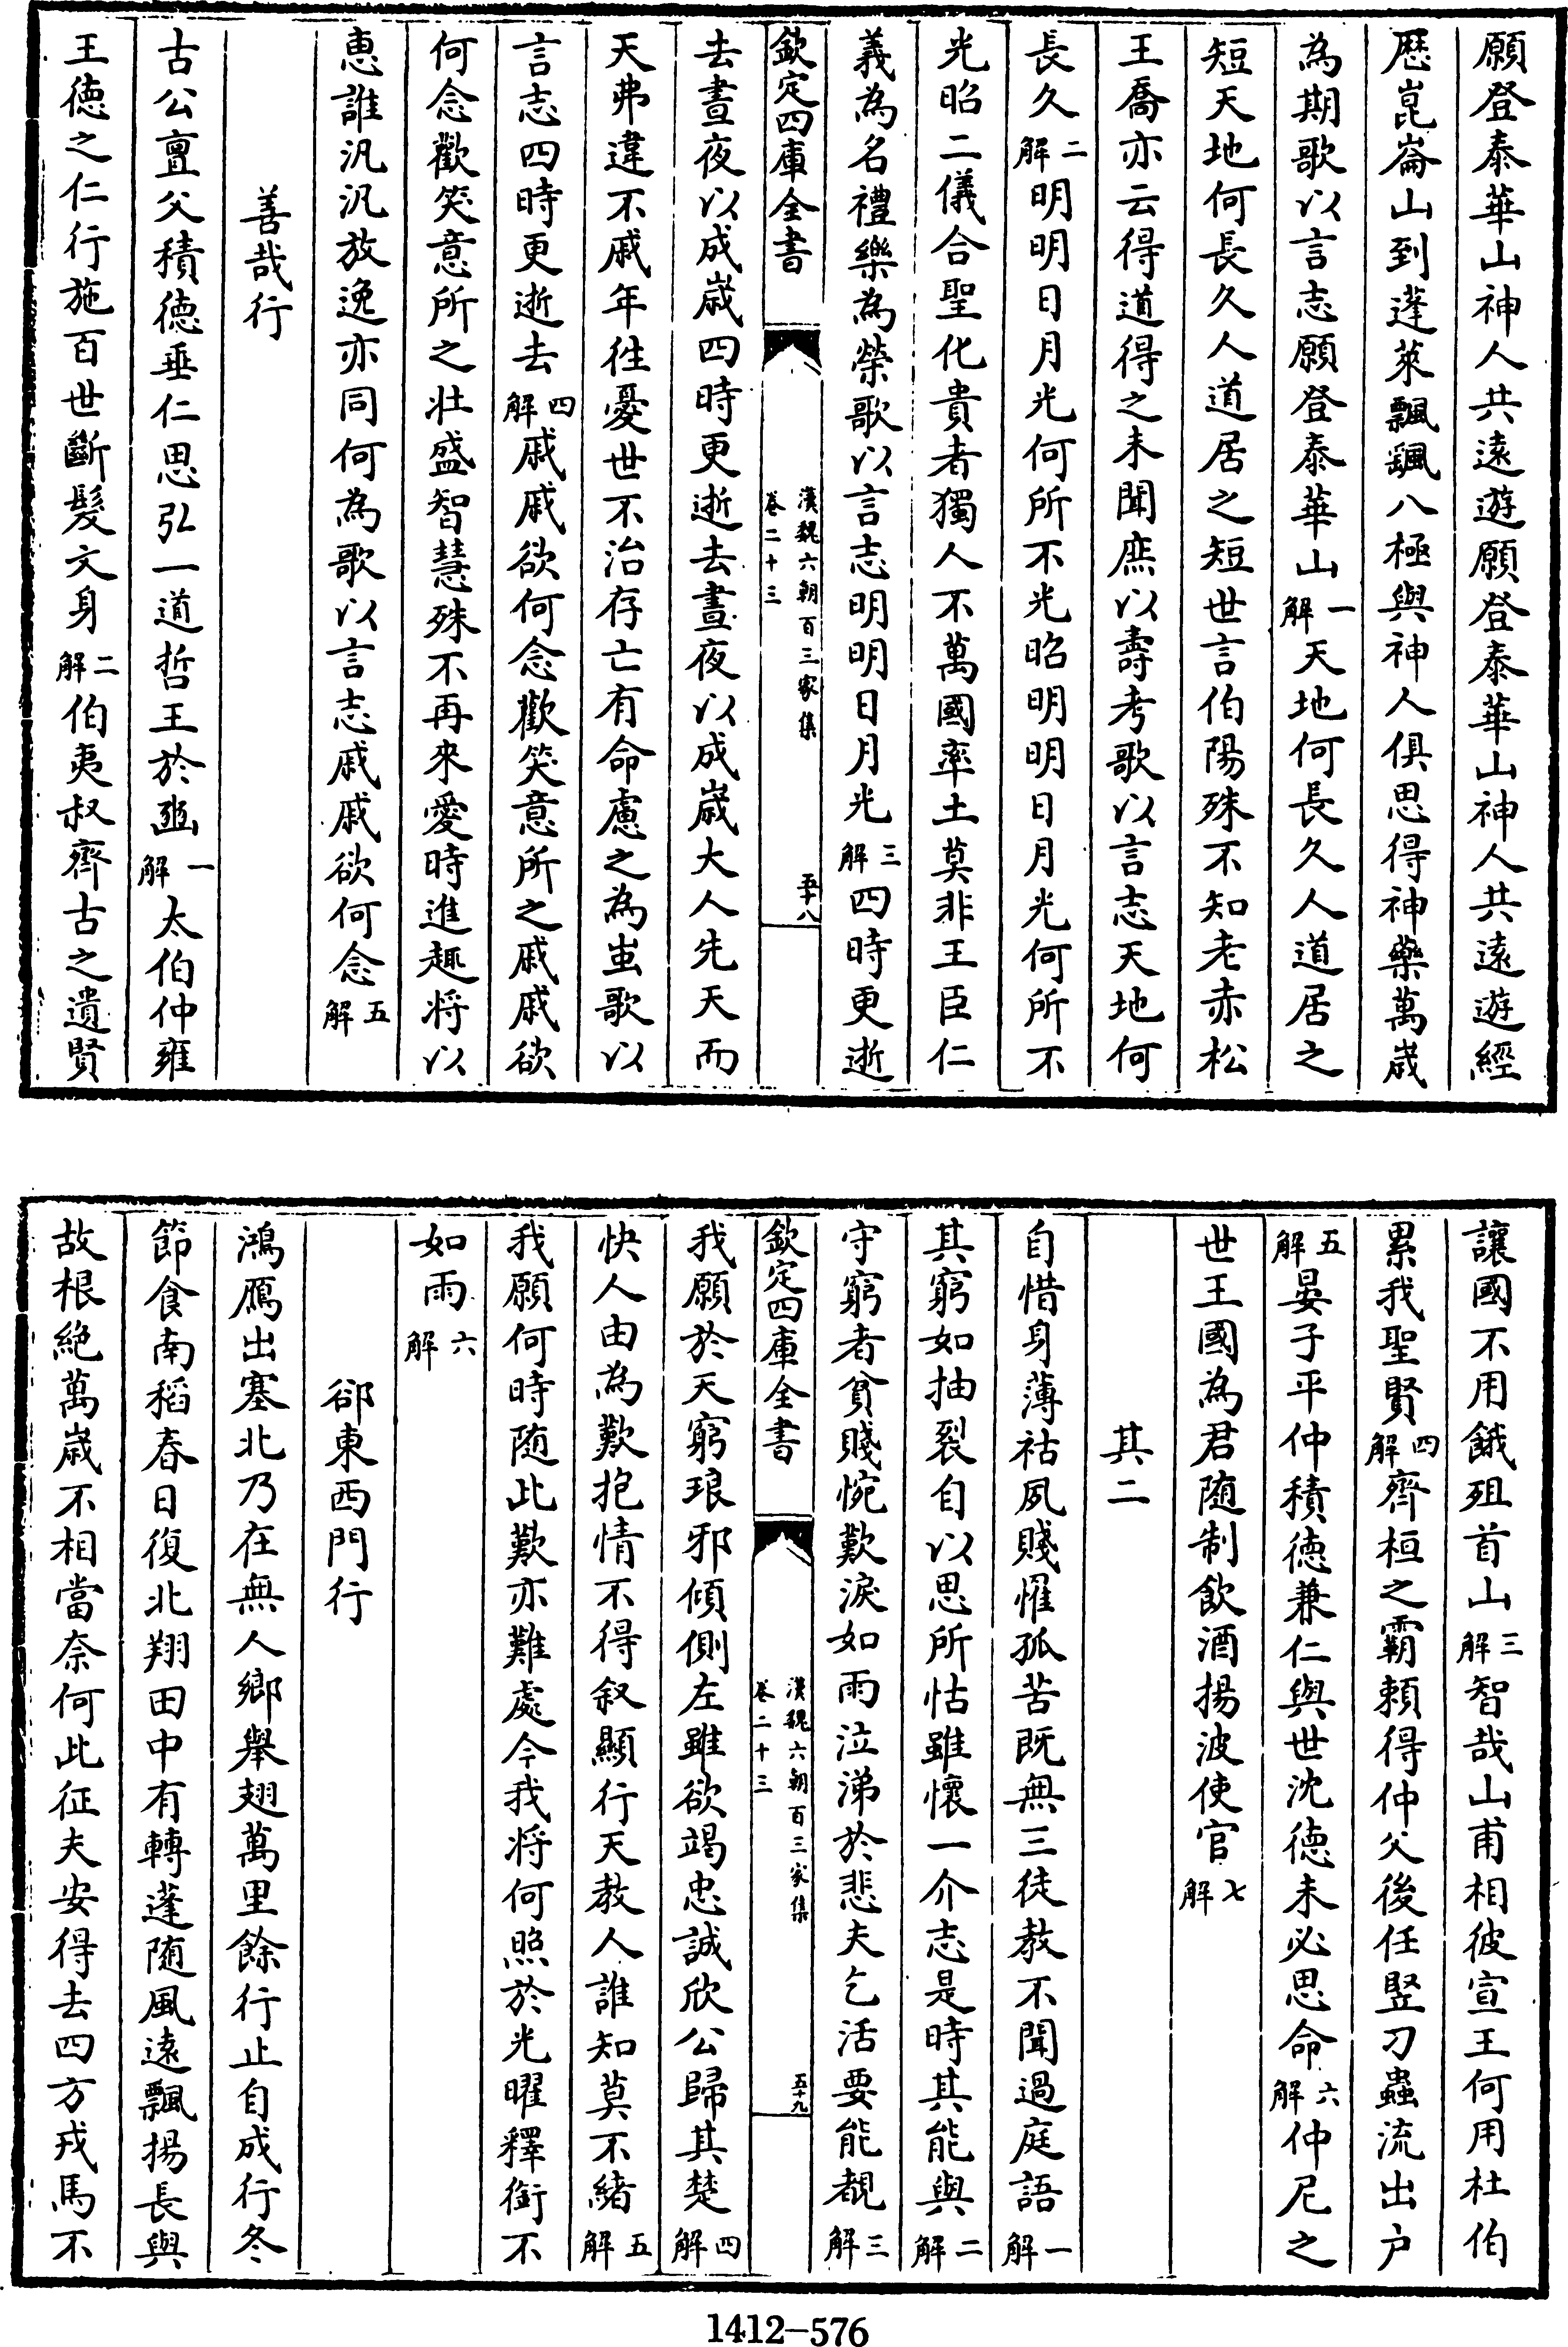 願登泰華山神人共遠遊願登泰華山神人共遠遊經
歴崑崙山到蓬萊飄颻八極與神人俱思得神藥萬歳
為期歌以言志願登泰華山一解天地何長久人道居之
短天地何長久人道居之短世言伯陽殊不知老赤松
王喬亦云得道得之未聞庶以壽考歌以言志天地何
長久二解明明日月光何所不光昭明明日月光何所不
光昭二儀合聖化貴者獨人不萬國率土莫非王臣仁
義為名禮樂為榮歌以言志明明日月光三解四時更逝
欽定四庫全書
漢魏六朝百三家集
卷二十三
五十八
去晝夜以成歳四時更逝去晝夜以成歳大人先天而
天弗違不戚年徃憂世不治存亡有命慮之為蚩歌以
言志四時更逝去四解戚戚欲何念歡笑意所之戚戚欲
何念歡笑意所之壯盛智慧殊不再來愛時進趣将以
惠誰汎汎放逸亦同何為歌以言志戚戚欲何念五解
善哉行
古公亶父積徳垂仁思弘一道哲王於豳一解太伯仲雍
王徳之仁行施百世斷髮文身二解伯夷叔齊古之遺賢
讓國不用餓殂首山三解智哉山甫相彼宣王何用杜伯
累我聖賢四解齊桓之霸頼得仲父後任竪刁蟲流出户
五解晏子平仲積徳兼仁與世沈徳未必思命六解仲尼之
世王國為君随制飲酒揚波使官七解
其二
自惜身薄祜夙賤罹孤苦既無三徒教不聞過庭語一解
其窮如抽裂自以思所怙雖懷一介志是時其能與二解
守窮者貧賤惋歎淚如雨泣涕於悲夫乞活要能覩三解
欽定四庫全書
漢魏六朝百三家集
卷二十三
五十九
我願於天窮琅邪傾側左雖欲竭忠誠欣公歸其楚四解
快人由為歎抱情不得叙顯行天教人誰知莫不緒五解
我願何時随此歎亦難處今我将何照於光曜釋銜不
如雨六解
郤東西門行
鴻鴈出塞北乃在無人鄉舉翅萬里餘行止自成行冬
節食南稻春日復北翔田中有轉蓬随風遠飄揚長與
故根絶萬歳不相當奈何此征夫安得去四方戎馬不
1412—576